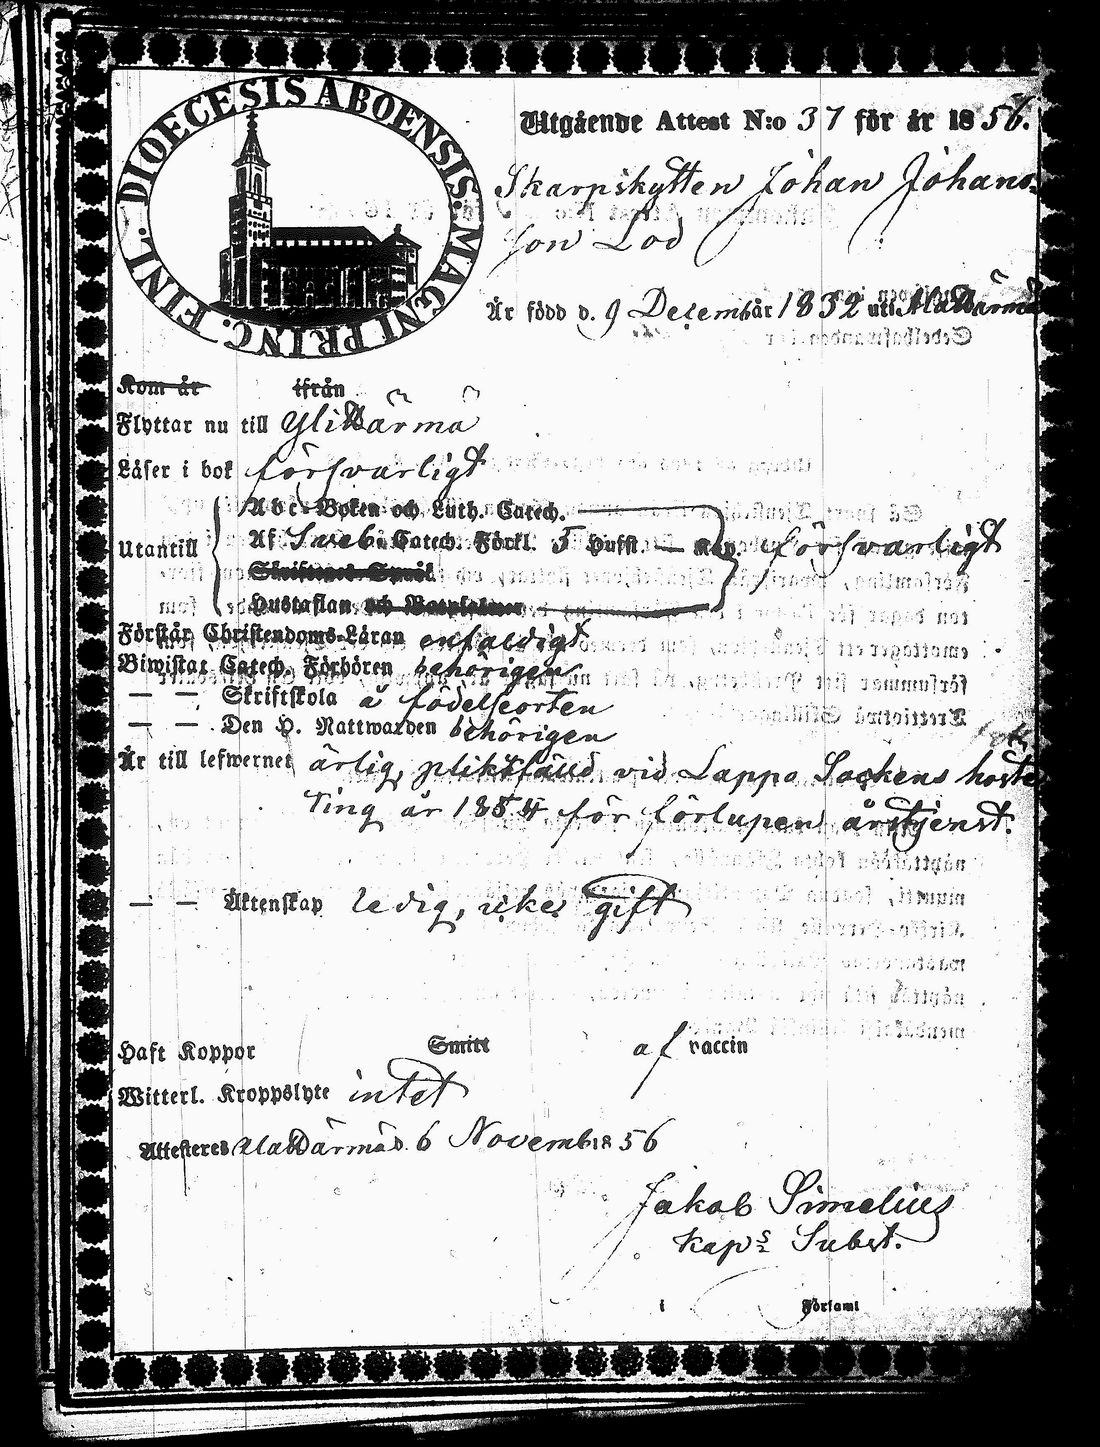 DIOECESIS ABOENSIS. MAGNI PRINC. FINL.
Utgående Attest N:o 37 för år 1856.
Skarpskytten Johan Johans-
son Lod
Är född d. 9 Decembär 1832 uti AlaHärmä
Kom år ifrån
Flyttar nu till YliHärmä
Läser i bok försvarligt
Abc-Boken och Luth. Catech.
Utantill Af Sveb. Catech. Förkl. 5 Hufst. — Kap. försvarligt
Skriftenes Språk
Hustaflan och Botpsalmer
Förstår Christendoms-Läran enfaldigt
Biwistat Catech. Förhören behörigen
— — Skriftskola å födelseorten
— — Den H. Nattwarden behörigen
Är till lefwernet ärlig, pliktfälld vid Lappo Sockens höste
ting år 1854 för förlupen årstjenst.
— — Äktenskap ledig, icke gift
Haft Koppor Smitt af vaccin
Witterl. Kroppslyte intet
Attesteres AlaHärmä d. 6 Novemb 1856
Jakob Simelius
Kap:s Subst.
i Församl